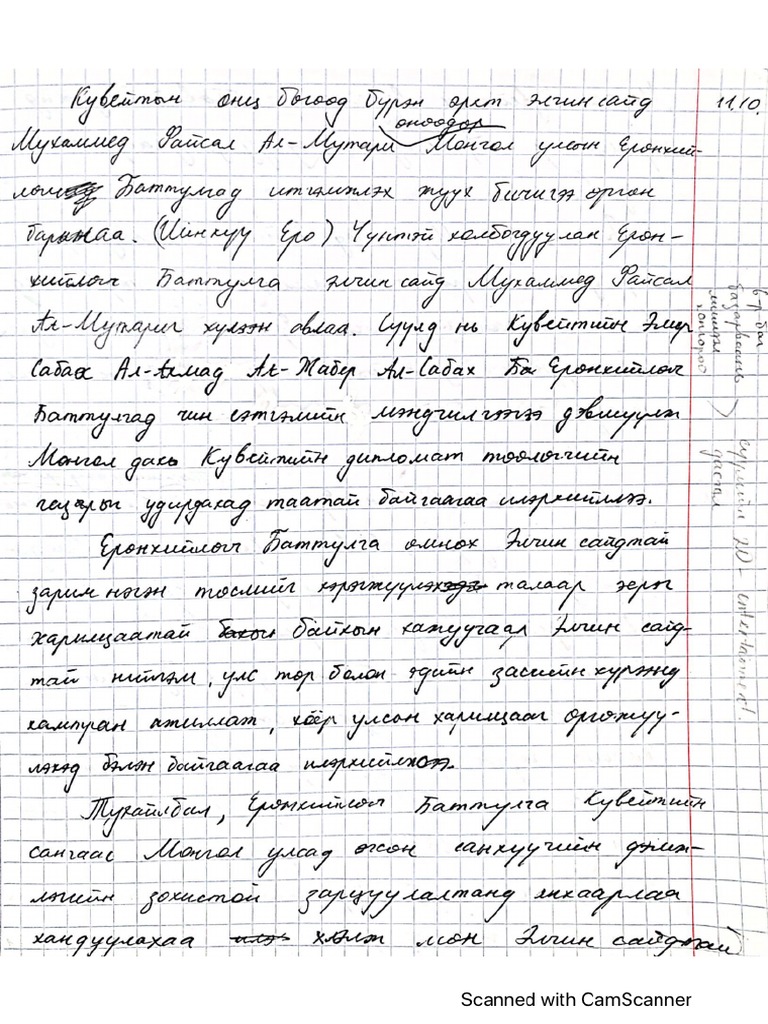 Кувейтын онц бөгөөд бүрэн эрхт элчин сайд 11.10.
өнөөдөр
Мухаммед Файсал Ал-Мутари Монгол улсын Ерөнхий-
лөгч Баттулгад итгэмжлэх жуух бичигээ өргөн
барилаа. (Шинхуу Ero) Үүнтэй холбогдуулан Ерөн-
хийлөгч Баттулга элчин сайд Мухаммед Файсал
Ал-Мутариг хүлээн авлаа. Сүүлд нь Кувейтийн Эмир
Сабах Ал-Ахмад Ал-Жабер Ал-Сабах Ерөнхийлөгч
Баттулгад чин сэтгэлийн мэндчилгээгээ дэвшүүлж
Монгол дахь Кувейтийн дипломат төөлөгчийн
газрыг удирдахад таатай байгаагаа илэрхийллээ.
Ерөнхийлөгч Баттулга өмнөх Элчин сайдтай
зарим нэгэн төслийг хэрэгжүүлэх талаар эерэг
харилцаатай байхын хажуугаар Элчин сайд-
тай нийгэм, улс төр болон эдийн засгийн хүрээнд
хамтран ажиллаж, хоёр улсын харилцааг өргөжүү-
лэхэд бэлэн байгаагаа илэрхийлжээ.
Тухайлбал, Ерөнхийлөгч Баттулга Кувейтийн
сангаас Монгол улсад өгсөн санхүүгийн дэмж-
лэгийн зохистой зарцуулалтанд анхаарлаа
хандуулахаа хэлж мөн Элчин сайдтай